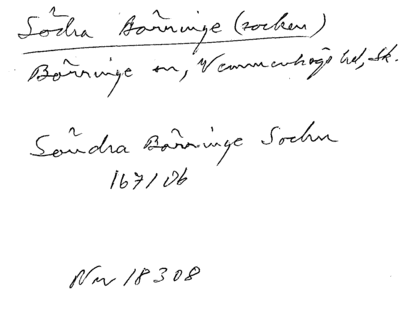 Södra Börringe (socken)
Börringe sn, Vemmenhögs hd, Sk.
Söudra Börringe Sochn
167/06
Nm 18308